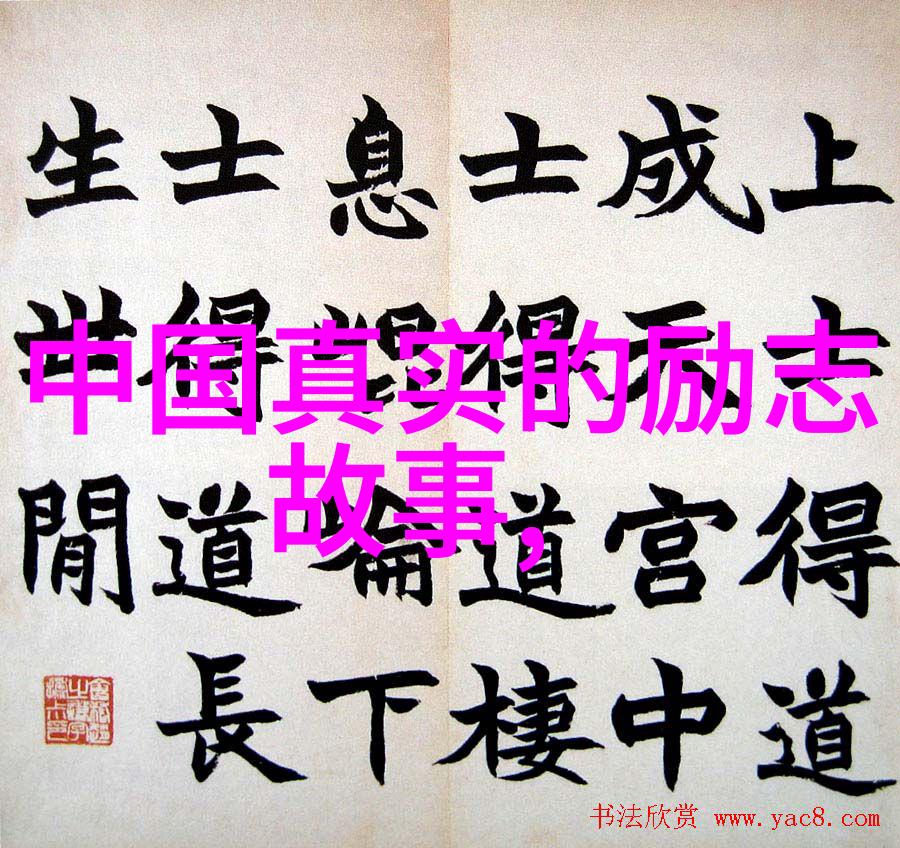 上士得道
成天宮中
士得道棲
息崘下
士得道長
生世閒
中国真实的励志
故事,
书法欣赏 www.yac8.com